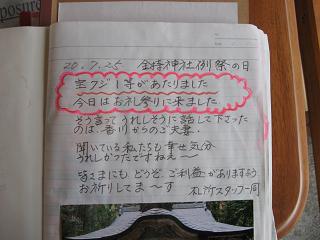 posure
20.7.25 金持神社例祭の日
宝クジ1等があたりました
今日はお礼参りに来ました
そう言って うれしそうに話して下さった
のは、香川からのご夫妻.
聞いている私たちも 幸せ気分
うれしかったですねえ〜
皆さまにも どうぞ、ご利益がありますよう
お祈りしてま〜す 札所スタッフ一同